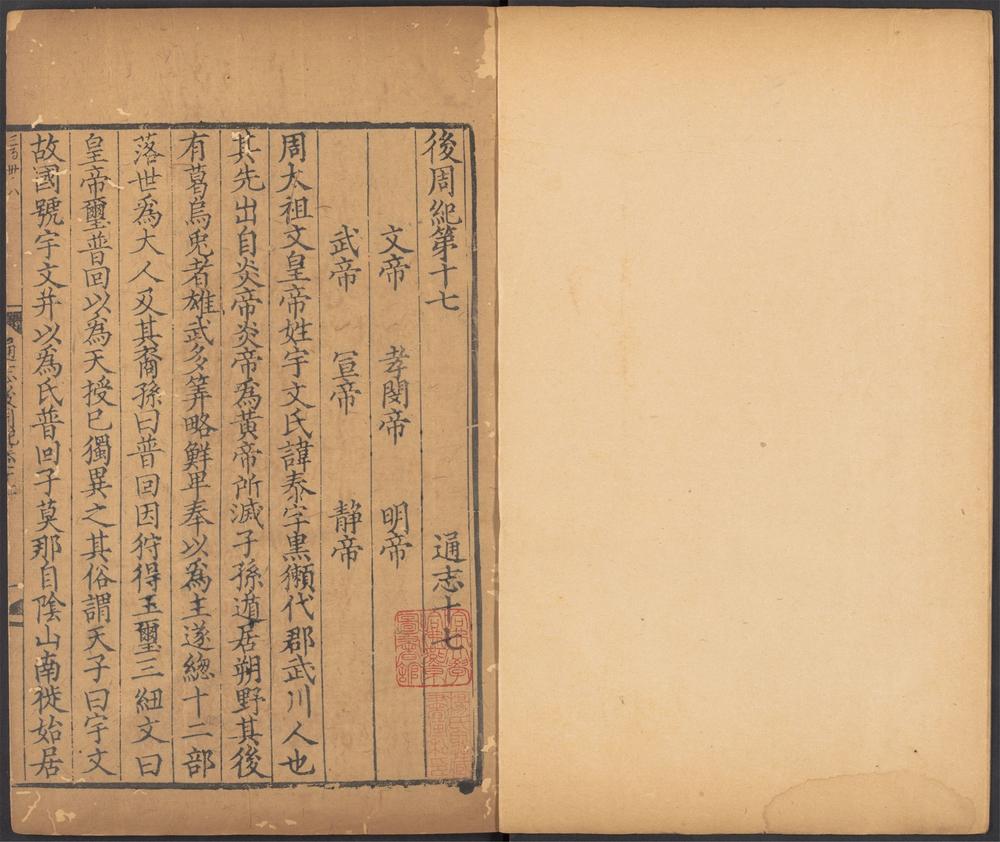 後周紀第十七 通志十七
文帝 孝閔帝 明帝
武帝 宣帝 靜帝
周太祖文皇帝姓宇文氏諱泰字黒獺代郡武川人也
其先出自炎帝炎帝為黃帝所滅子孫遁居朔野其後
有葛烏兎者雄武多筭略鮮卑奉以為主遂總十二部
落世為大人及其裔孫曰普回因狩得玉璽三紐文曰
皇帝璽普回以為天授已獨異之其俗謂天子曰宇文
故國號宇文并以為氏普回子莫那自陰山南徙始居